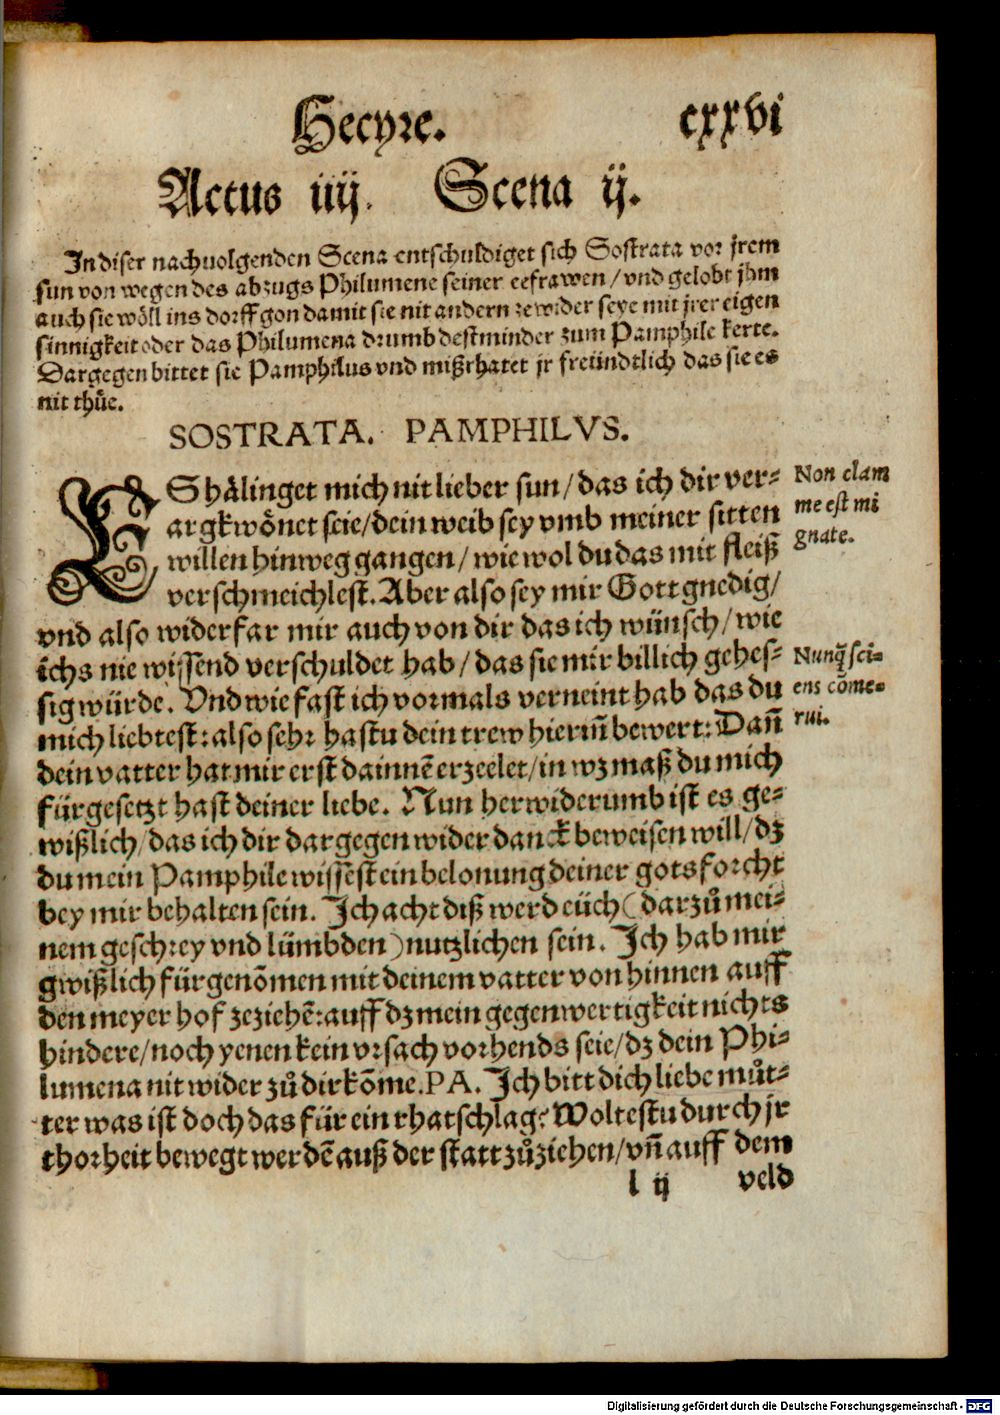 Hecyre. cxxvi
Actus iiij. Scena ij.
In diser nachuolgenden Scena entschuldiget sich Sostrata vor jrem
sun von wegen des abzugs Philumene seiner eefrawen / vnd gelobt jhm
auch sie wöll ins dorff gon damit sie nit andern zewider seye mit jrer eigen
sinnigkeit oder das Philumena drumb destminder zum Pamphile kerte.
Dargegen bittet sie Pamphilus vnd mißrhatet jr freündtlich das sie es
nit thüe.
SOSTRATA. PAMPHILVS.
ES hälinget mich nit lieber sun / das ich dir ver-
argkwönet seie / dein weib sey vmb meiner sitten
willen hinweg gangen / wie wol du das mit fleiß
verschmeichlest. Aber also sey mir Gott gnedig /
vnd also widerfar mir auch von dir das ich wünsch / wie
ichs nie wissend verschuldet hab / das sie mir billich gehes-
sig würde. Vnd wie fast ich vormals verneint hab das du
mich liebtest: also sehr hastu dein trew hierin̄ bewert: Dan̄
dein vatter hat mir erst dainnē erzeelet / in wz maß du mich
fürgesetzt hast deiner liebe. Nun herwiderumb ist es ge-
wißlich / das ich dir dargegen widerdanck beweisen will / dz
du mein Pamphile wissest ein belonung deiner gotsforcht
bey mir behalten sein. Ich acht diß werd eüch (darzů mei-
nem geschrey vnd lümbden) nutzlichen sein. Ich hab mir
gwißlich fürgenōmen mit deinem vatter von hinnen auff
den meyer hof zeziehē: auff dz mein gegenwertigkeit nichts
hindere / noch yenen kein vrsach vorhends seie / dz dein Phi-
lumena nit wider zů dir kōme. PA. Ich bitt dich liebe můt-
ter was ist doch das für ein rhatschlag? Woltestu durch jr
thorheit bewegt werdē auß der statt zůziehen / vn̄ auff dem
l ij veld
Non clam
me est mi
gnate.
Nunq̄ sci-
ens cōme-
rui.
Digitalisierung gefördert durch die Deutsche Forschungsgemeinschaft - DFG